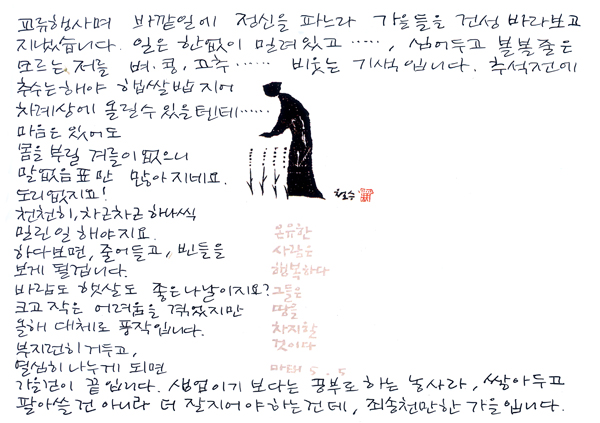 교류행사며 바깥일에 정신을 파느라 가을들을 건성 바라보고
지냈습니다. 일은 한없이 밀려있고 ‥‥‥, 심어두고 볼볼줄은
모르는, 저를 벼·콩, 고추 ‥‥‥ 비웃는 기색입니다. 추석전에
추수는해야 햅쌀밥지어
차례상에 올릴수 있을텐데‥‥‥
마음은 있어도
몸을 부릴 겨를이 없으니
말없음표만 많아지네요.
도리없지요!
천천히, 차근차근 하나씩
밀린일 해야지요.
하다보면, 줄어들고, 빈들을
보게 될겁니다.
바람도 햇살도 좋은나날이지요?
크고 작은 어려움을 겪었지만
올해 대체로 풍작입니다.
부지런히 거두고,
열심히 나누게 되면
가을걷이 끝입니다. 생업이기 보다는 공부로 하는 농사라, 쌓아두고
팔아쓸건 아니라 더 잘지어야 하는건데, 죄송천만한 가을입니다.
철수
온유한
사람은
행복하다
그들은
땅을
차지할
것이다
마태 5. 5